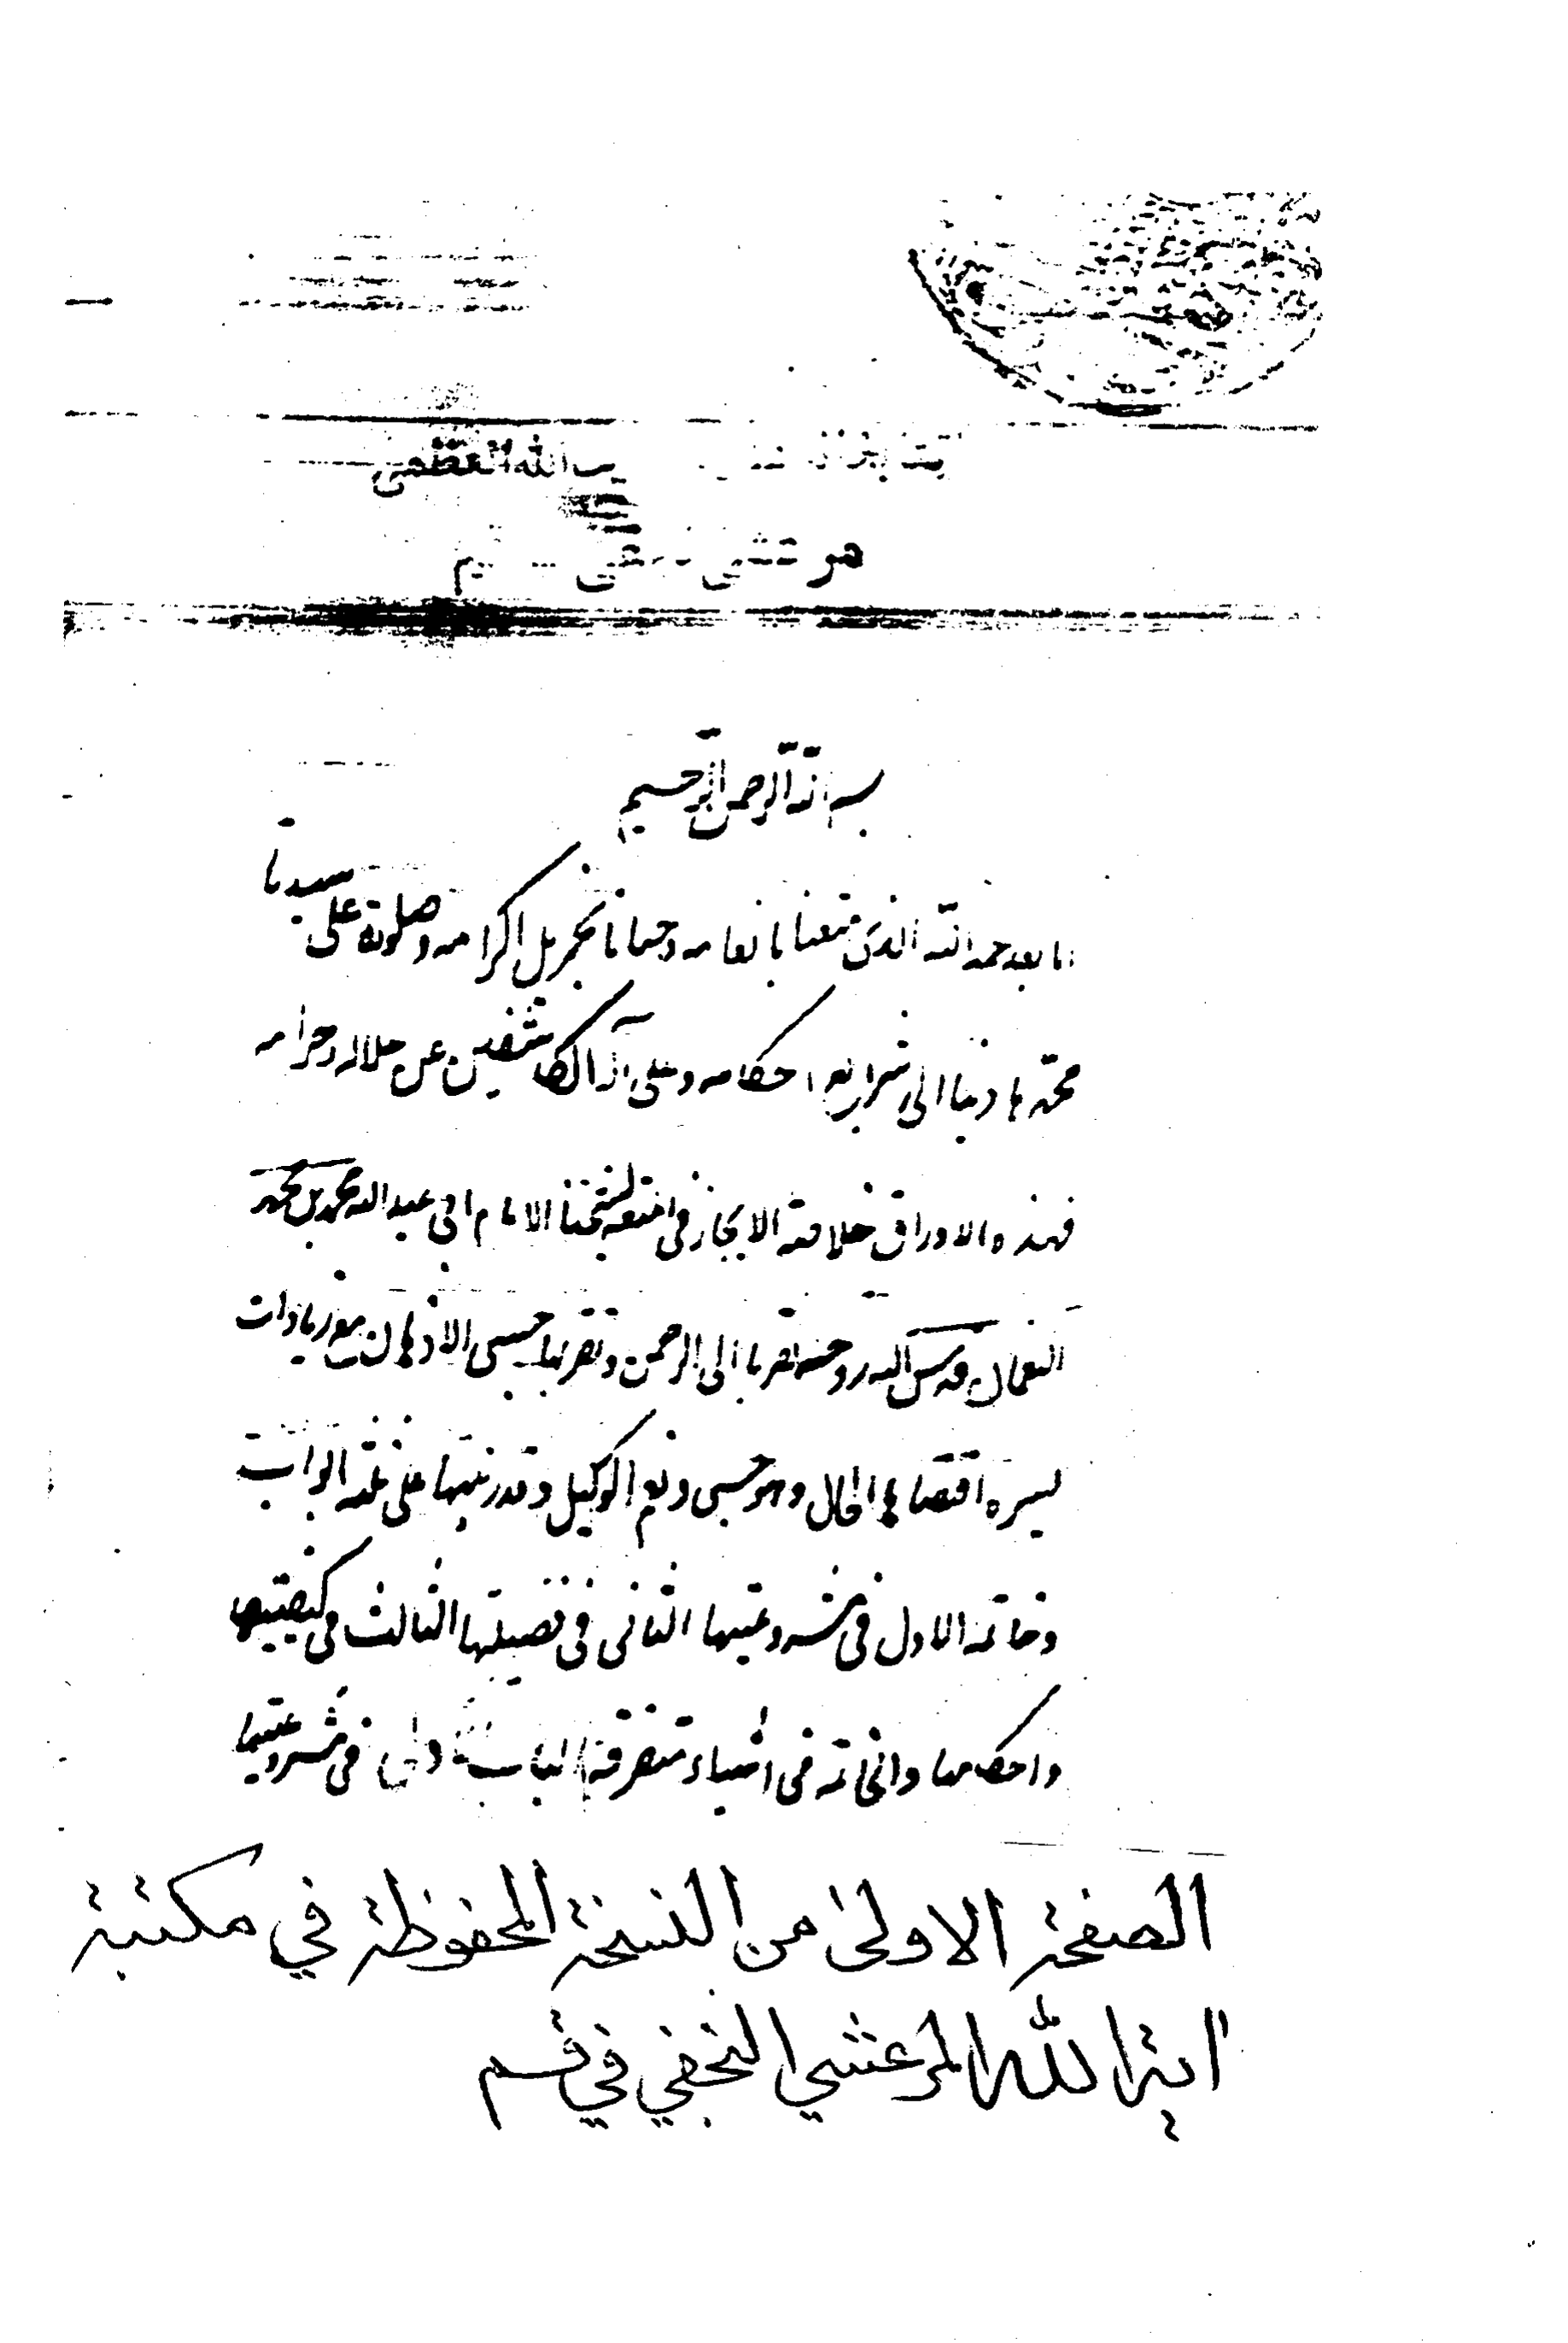 الله العظمى
بسم الله الرحمن الرحيم
اما بعد حمد الله الذى متعنا بانعامه وحبانا بجزيل اكرامه وصلوته على سيدنا
محمد هادينا الى شرايع احكامه وعلى آله الكاشفين عن حلاله وحرامه
فهذه الاوراق خلاصة الايجاز فى المتعه لشيخنا الامام ابى عبد الله محمد بن محمد
النعمان قدس الله روحه تقربا الى الرحمن وتقريبا الاذهان مع زيادات
يسيره اقتضاها الحال وهو حسبى ونعم الوكيل وقد رتبتها على ثلثه ابواب
وخاتمه الاول فى مشروعيتها الثانى فى فضيلتها الثالث فى كيفيتها
واحكامها والخاتمه فى اشياء متفرقة الباب الاول فى مشروعيتها
الصفحة الاولى من النسخة المحفوظة في مكتبة
اية الله المرعشي النجفي في قم